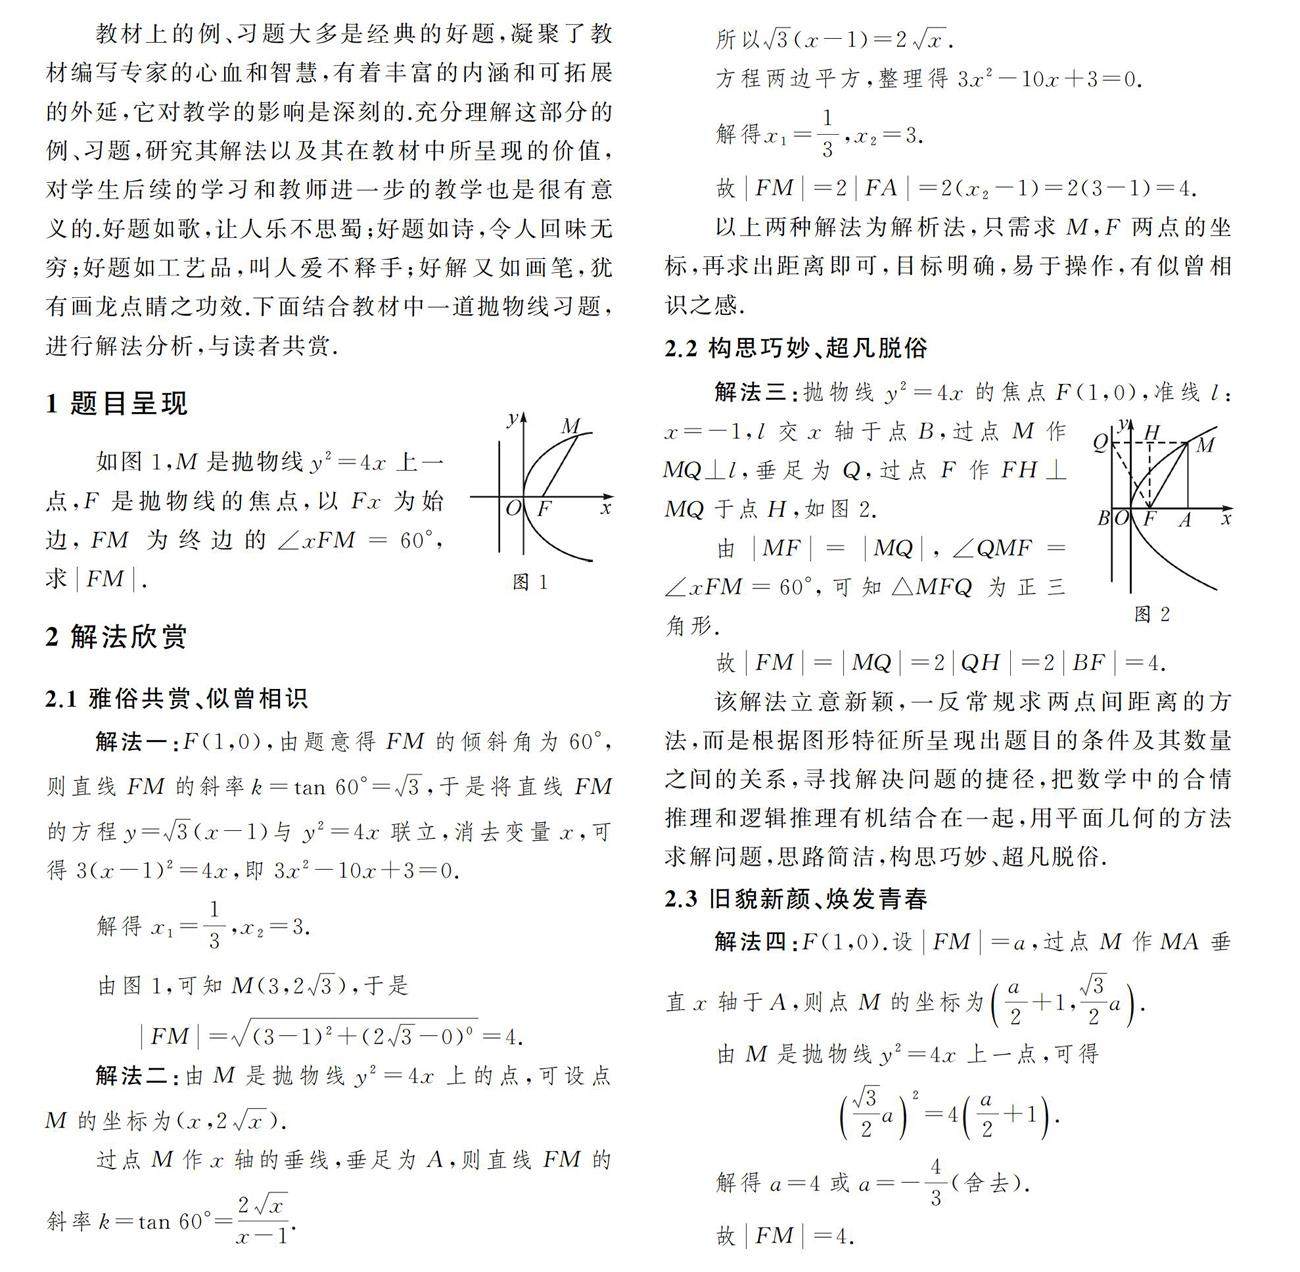 教材上的例、习题大多是经典的好题,凝聚了教
材编写专家的心血和智慧,有着丰富的内涵和可拓展
的外延,它对教学的影响是深刻的.充分理解这部分的
例、习题,研究其解法以及其在教材中所呈现的价值,
对学生后续的学习和教师进一步的教学也是很有意
义的.好题如歌,让人乐不思蜀;好题如诗,令人回味无
穷;好题如工艺品,叫人爱不释手;好解又如画笔,犹
有画龙点睛之功效.下面结合教材中一道抛物线习题,
进行解法分析,与读者共赏.
1 题目呈现
如图 1,M 是抛物线 y²=4x 上一
点,F 是抛物线的焦点,以 Fx 为始
边, FM 为终边的 ∠xFM = 60°,
求|FM|.
y M
O F x
图 1
2 解法欣赏
2.1 雅俗共赏、似曾相识
解法一:F(1,0),由题意得 FM 的倾斜角为 60°,
则直线 FM 的斜率 k=tan 60°=√3,于是将直线 FM
的方程 y=√3(x-1)与 y²=4x 联立,消去变量 x,可
得 3(x-1)²=4x,即 3x²-10x+3=0.
解得 x₁=1/3,x₂=3.
由图 1,可知 M(3,2√3),于是
|FM|=√((3-1)²+(2√3-0)⁰)=4.
解法二:由 M 是抛物线 y²=4x 上的点,可设点
M 的坐标为(x,2√x).
过点 M 作 x 轴的垂线,垂足为 A,则直线 FM 的
斜率 k=tan 60°=2√x/(x-1).
所以√3(x-1)=2√x.
方程两边平方,整理得 3x²-10x+3=0.
解得x₁=1/3,x₂=3.
故|FM|=2|FA|=2(x₂-1)=2(3-1)=4.
以上两种解法为解析法,只需求 M,F 两点的坐
标,再求出距离即可,目标明确,易于操作,有似曾相
识之感.
2.2 构思巧妙、超凡脱俗
解法三:抛物线 y²=4x 的焦点 F(1,0),准线 l:
x=-1,l 交 x 轴于点 B,过点 M 作
MQ⊥l,垂足为 Q,过点 F 作 FH⊥
MQ 于点 H,如图 2.
由 |MF| = |MQ|, ∠QMF =
∠xFM = 60°, 可知 △MFQ 为正三
角形.
Q y H M
B O F A x
图 2
故|FM|=|MQ|=2|QH|=2|BF|=4.
该解法立意新颖,一反常规求两点间距离的方
法,而是根据图形特征所呈现出题目的条件及其数量
之间的关系,寻找解决问题的捷径,把数学中的合情
推理和逻辑推理有机结合在一起,用平面几何的方法
求解问题,思路简洁,构思巧妙、超凡脱俗.
2.3 旧貌新颜、焕发青春
解法四:F(1,0).设|FM|=a,过点 M 作 MA 垂
直 x 轴于 A,则点 M 的坐标为(a/2+1,√3/2 a).
由 M 是抛物线 y²=4x 上一点,可得
(√3/2 a)²=4(a/2+1).
解得 a=4 或 a=-4/3(舍去).
故|FM|=4.